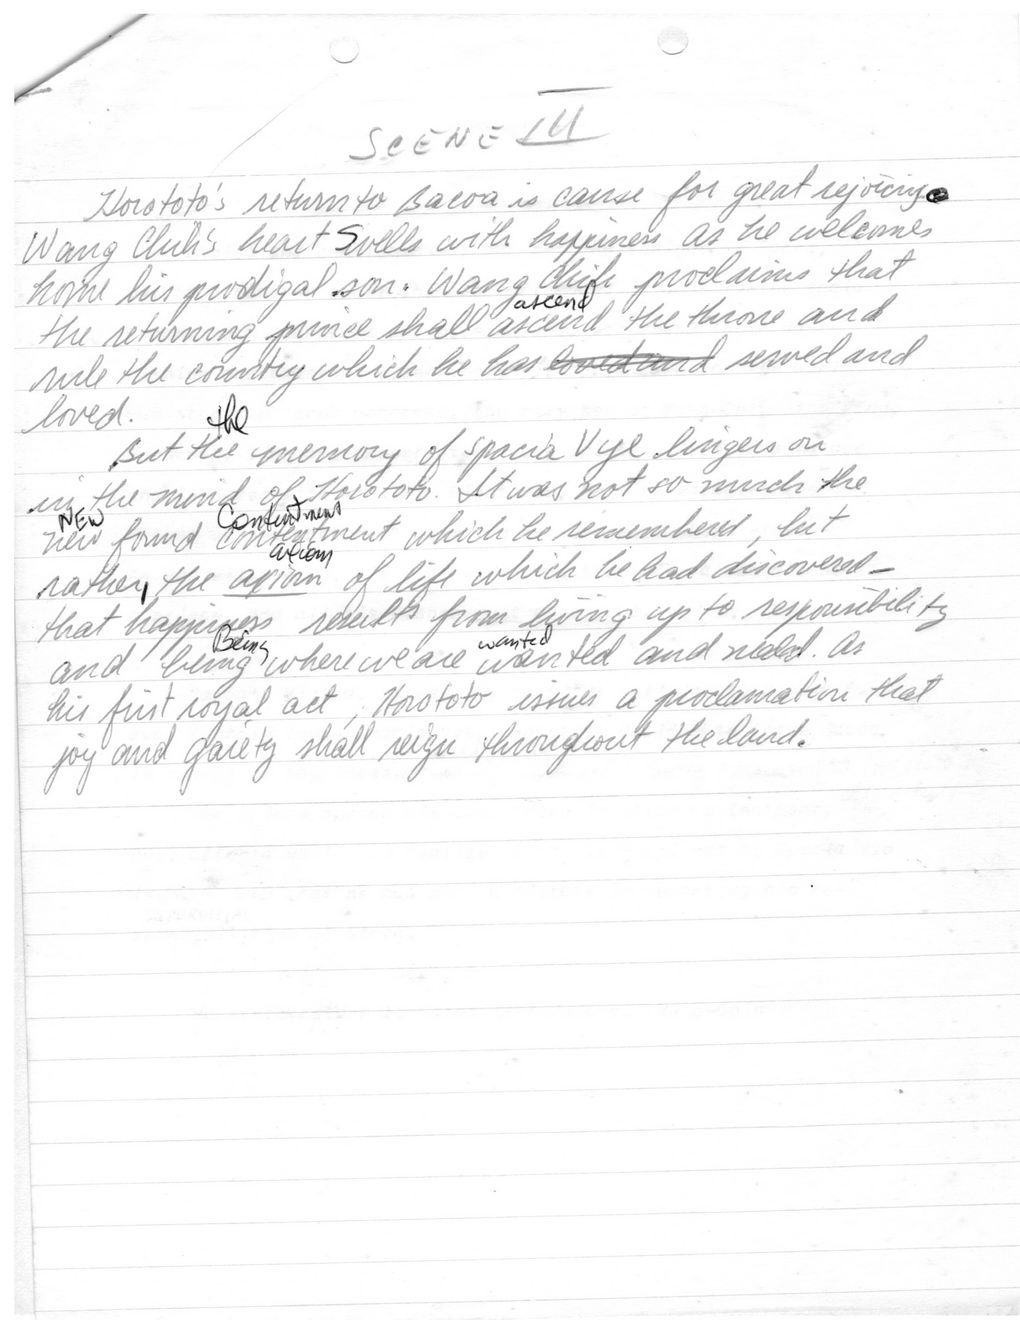 SCENE III
Horototo's return to Bacoa is cause for great rejoicing.
Wang Chih's heart Swells with happiness as he welcomes
home his prodigal son. Wang Chih proclaims that
ascend
the returning prince shall ascend the throne and
rule the country which he has loved and served and
loved.
the
But the memory of Spacia Vye lingers on
in the mind of Horototo. It was not so much the
NEW Contentment
new found contentment which he remembered, but
axiom
rather, the axiom of life which he had discovered -
that happiness results from living up to responsibility
Being wanted
and being where we are wanted and need. As
his first royal act, Horototo issues a proclamation that
joy and gaiety shall reign throughout the land.